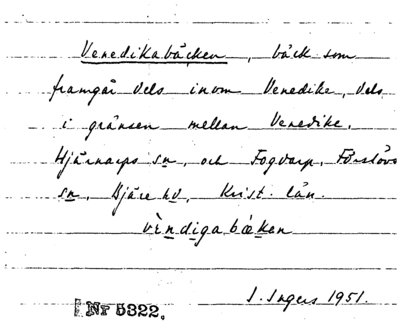 Venedikabäcken, bäck som
framgår dels inom Venedike, dels
i gränsen mellan Venedike,
Hjärnarps sn, och Fogdarp, Förslövs
sn, Bjäre hd, Krist. län.
vèndiga bækan
I. Ingers 1951.
Nr 5322.